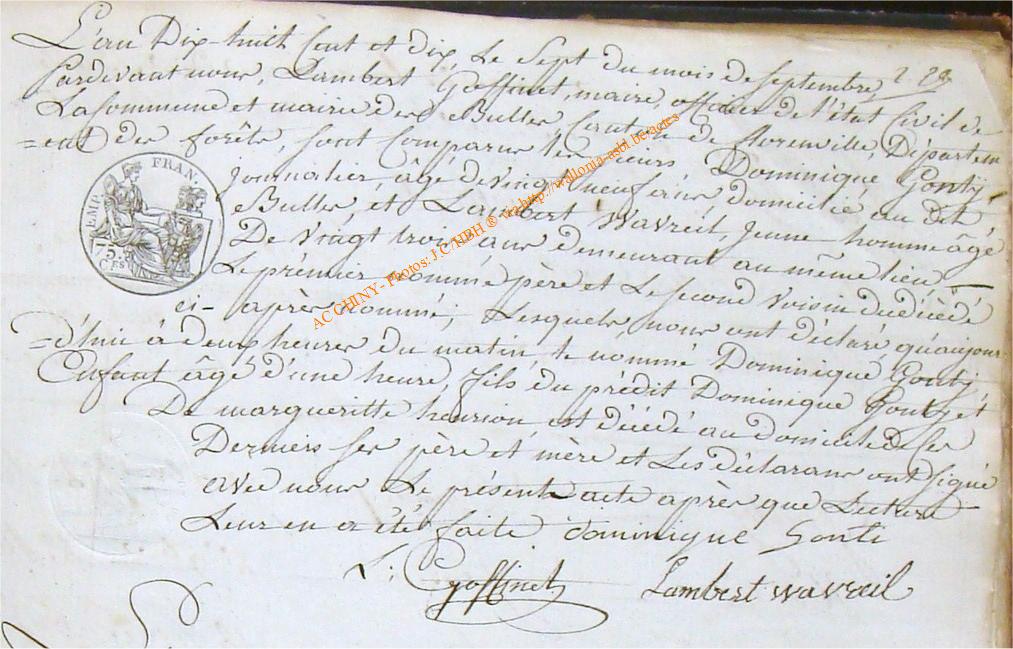 L'an Dix-huit Cent et dix, Le Sept du mois de Septembre
Pardevant nous, Lambert Goffinet, maire, officier de l'état Civil de
La Commune et mairie des Bulles, Canton de florenville, Départem
=ent des forêts, sont Comparus les sieurs Dominique Gonty
journalier, âgé de vingt neuf ans domicilié au dit
Bulles, et Lambert Wavreil, jeune homme âgé
De vingt trois ans demeurant au même lieu,
Le prémier nommé père et Le second voisin du décédé
ci-après nommé; Lesquels, nous ont déclaré, qu'aujour-
=d'hui à deux heures du matin, le nommé Dominique Gonty
Enfant âgé d'une heure, fils du prédit Dominique Gonty et
De margueritte henrion est décédé au domicile de ses
Derniers ses père et mère et Les déclarans ont signé
avec nous Le présent acte après que Lecture
Leur en a été faite dominique Gonti
L: Goffinet Lambert wavreil
EMP. FRAN.
75.
CES
ACGHINY - Photos: J.C. HBH ® http://wallonia-asbl.be/actes